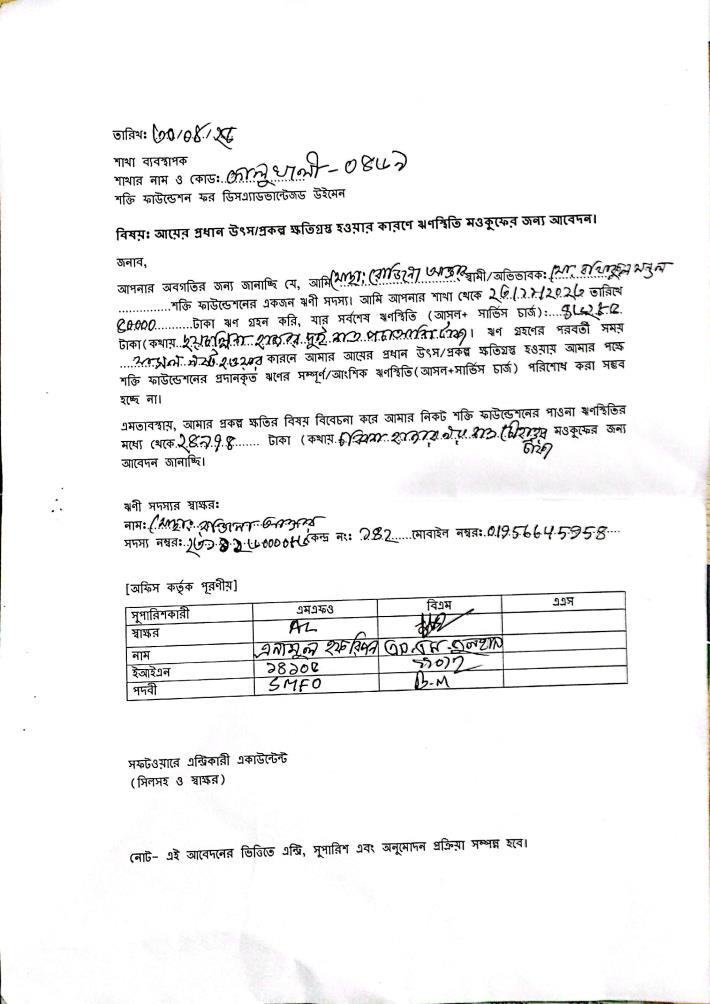 তারিখ: ৩০/০৪/২৫
শাখা ব্যবস্থাপক
শাখার নাম ও কোড: কালুখালী - ০৪৬৯
শক্তি ফাউন্ডেশন ফর ডিসএ্যাডভান্টেজড উইমেন
বিষয়: আয়ের প্রধান উৎস/প্রকল্প ক্ষতিগ্রস্ত হওয়ার কারণে ঋণস্থিতি মওকুফের জন্য আবেদন।
জনাব,
আপনার অবগতির জন্য জানাচ্ছি যে, আমি মোছা: স্বামী/অভিভাবক: মো:
শক্তি ফাউন্ডেশনের একজন ঋণী সদস্য। আমি আপনার শাখা থেকে তারিখে
টাকা ঋণ গ্রহন করি, যার সর্বশেষ ঋণস্থিতি (আসল+ সার্ভিস চার্জ):
টাকা (কথায় হাজার দুই শত টাকা)। ঋণ গ্রহণের পরবর্তী সময়
ফসল নষ্ট হওয়ার কারনে আমার আয়ের প্রধান উৎস/প্রকল্প ক্ষতিগ্রস্ত হওয়ায় আমার পক্ষে
শক্তি ফাউন্ডেশনের প্রদানকৃত ঋণের সম্পূর্ণ/আংশিক ঋণস্থিতি(আসল+সার্ভিস চার্জ) পরিশোধ করা সম্ভব
হচ্ছে না।
এমতাবস্থায়, আমার প্রকল্প ক্ষতির বিষয় বিবেচনা করে আমার নিকট শক্তি ফাউন্ডেশনের পাওনা ঋণস্থিতির
মধ্যে থেকে ২৪৯৭৪ টাকা (কথায় চব্বিশ হাজার নয় শত চৌহাত্তর মওকুফের জন্য
টাকা
আবেদন জানাচ্ছি।
ঋণী সদস্যর স্বাক্ষর:
নাম: মোছা:
সদস্য নম্বর: কেন্দ্র নং: ২৪২ মোবাইল নম্বর: 01956645958
[অফিস কর্তৃক পূরণীয়]
সুপারিশকারী এমএফও বিএম এএস
স্বাক্ষর
নাম এনামুল হক রিপন
ইআইএন ১৪১০৫
পদবী SMFO B.M
সফটওয়ারে এন্ট্রিকারী একাউন্টেন্ট
(সিলসহ ও স্বাক্ষর)
নোট- এই আবেদনের ভিত্তিতে এন্ট্রি, সুপারিশ এবং অনুমোদন প্রক্রিয়া সম্পন্ন হবে।